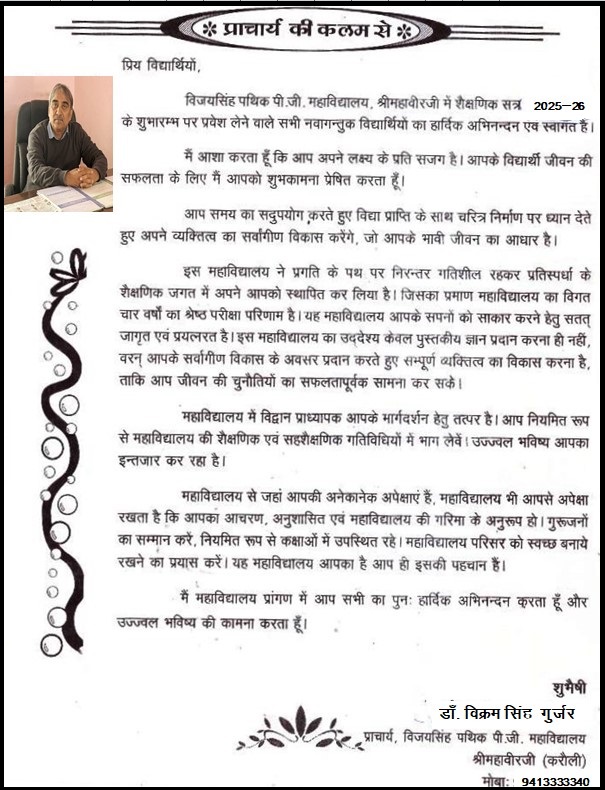 प्राचार्य की कलम से
प्रिय विद्यार्थियों,
विजयसिंह पथिक पी.जी. महाविद्यालय, श्रीमहावीरजी में शैक्षणिक सत्र 2025–26
के शुभारम्भ पर प्रवेश लेने वाले सभी नवागन्तुक विद्यार्थियों का हार्दिक अभिनन्दन एवं स्वागत है।
मैं आशा करता हूँ कि आप अपने लक्ष्य के प्रति सजग है। आपके विद्यार्थी जीवन की
सफलता के लिए मैं आपको शुभकामना प्रेषित करता हूँ।
आप समय का सदुपयोग करते हुए विद्या प्राप्ति के साथ चरित्र निर्माण पर ध्यान देते
हुए अपने व्यक्तित्व का सर्वांगीण विकास करेंगे, जो आपके भावी जीवन का आधार है।
इस महाविद्यालय ने प्रगति के पथ पर निरन्तर गतिशील रहकर प्रतिस्पर्धा के
शैक्षणिक जगत में अपने आपको स्थापित कर लिया है। जिसका प्रमाण महाविद्यालय का विगत
चार वर्षों का श्रेष्ठ परीक्षा परिणाम है। यह महाविद्यालय आपके सपनों को साकार करने हेतु सतत्
जागृत एवं प्रयत्नरत है। इस महाविद्यालय का उद्देश्य केवल पुस्तकीय ज्ञान प्रदान करना ही नहीं,
वरन् आपके सर्वांगीण विकास के अवसर प्रदान करते हुए सम्पूर्ण व्यक्तित्व का विकास करना है,
ताकि आप जीवन की चुनौतियों का सफलतापूर्वक सामना कर सके।
महाविद्यालय में विद्वान प्राध्यापक आपके मार्गदर्शन हेतु तत्पर है। आप नियमित रूप
से महाविद्यालय की शैक्षणिक एवं सहशैक्षणिक गतिविधियों में भाग लेवें। उज्ज्वल भविष्य आपका
इन्तजार कर रहा है।
महाविद्यालय से जहां आपकी अनेकानेक अपेक्षाएं हैं, महाविद्यालय भी आपसे अपेक्षा
रखता है कि आपका आचरण, अनुशासित एवं महाविद्यालय की गरिमा के अनुरूप हो। गुरूजनों
का सम्मान करें, नियमित रूप से कक्षाओं में उपस्थित रहे। महाविद्यालय परिसर को स्वच्छ बनाये
रखने का प्रयास करें। यह महाविद्यालय आपका है आप ही इसकी पहचान हैं।
मैं महाविद्यालय प्रांगण में आप सभी का पुनः हार्दिक अभिनन्दन करता हूँ और
उज्ज्वल भविष्य की कामना करता हूँ।
शुभैषी
डाँ. विक्रम सिंह गुर्जर
प्राचार्य, विजयसिंह पथिक पी.जी. महाविद्यालय
श्रीमहावीरजी (करौली)
मोबाः 9413333340